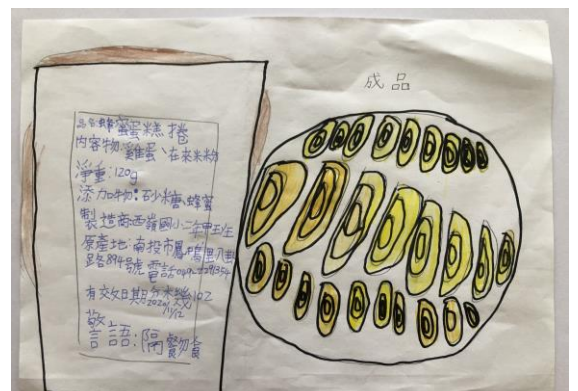 成品
品名:蜂蜜蛋糕捲
內容物:雞蛋、在來米粉
淨重:120g
添加物:砂糖、蜂蜜
製造商西嶺國小二年甲班
原產地:南投市鳳鳴里八卦
路894號電話
有效日期
2020/11/12
警語:隔餐勿食